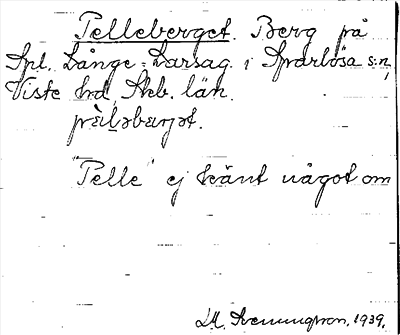 Pelleberget. Berg på
Spl. Långe-Larsag. i Sparlösa s:n,
Viste hd, Skb. län.
"Pelle" ej känt något om
M. Svenungsson, 1939.